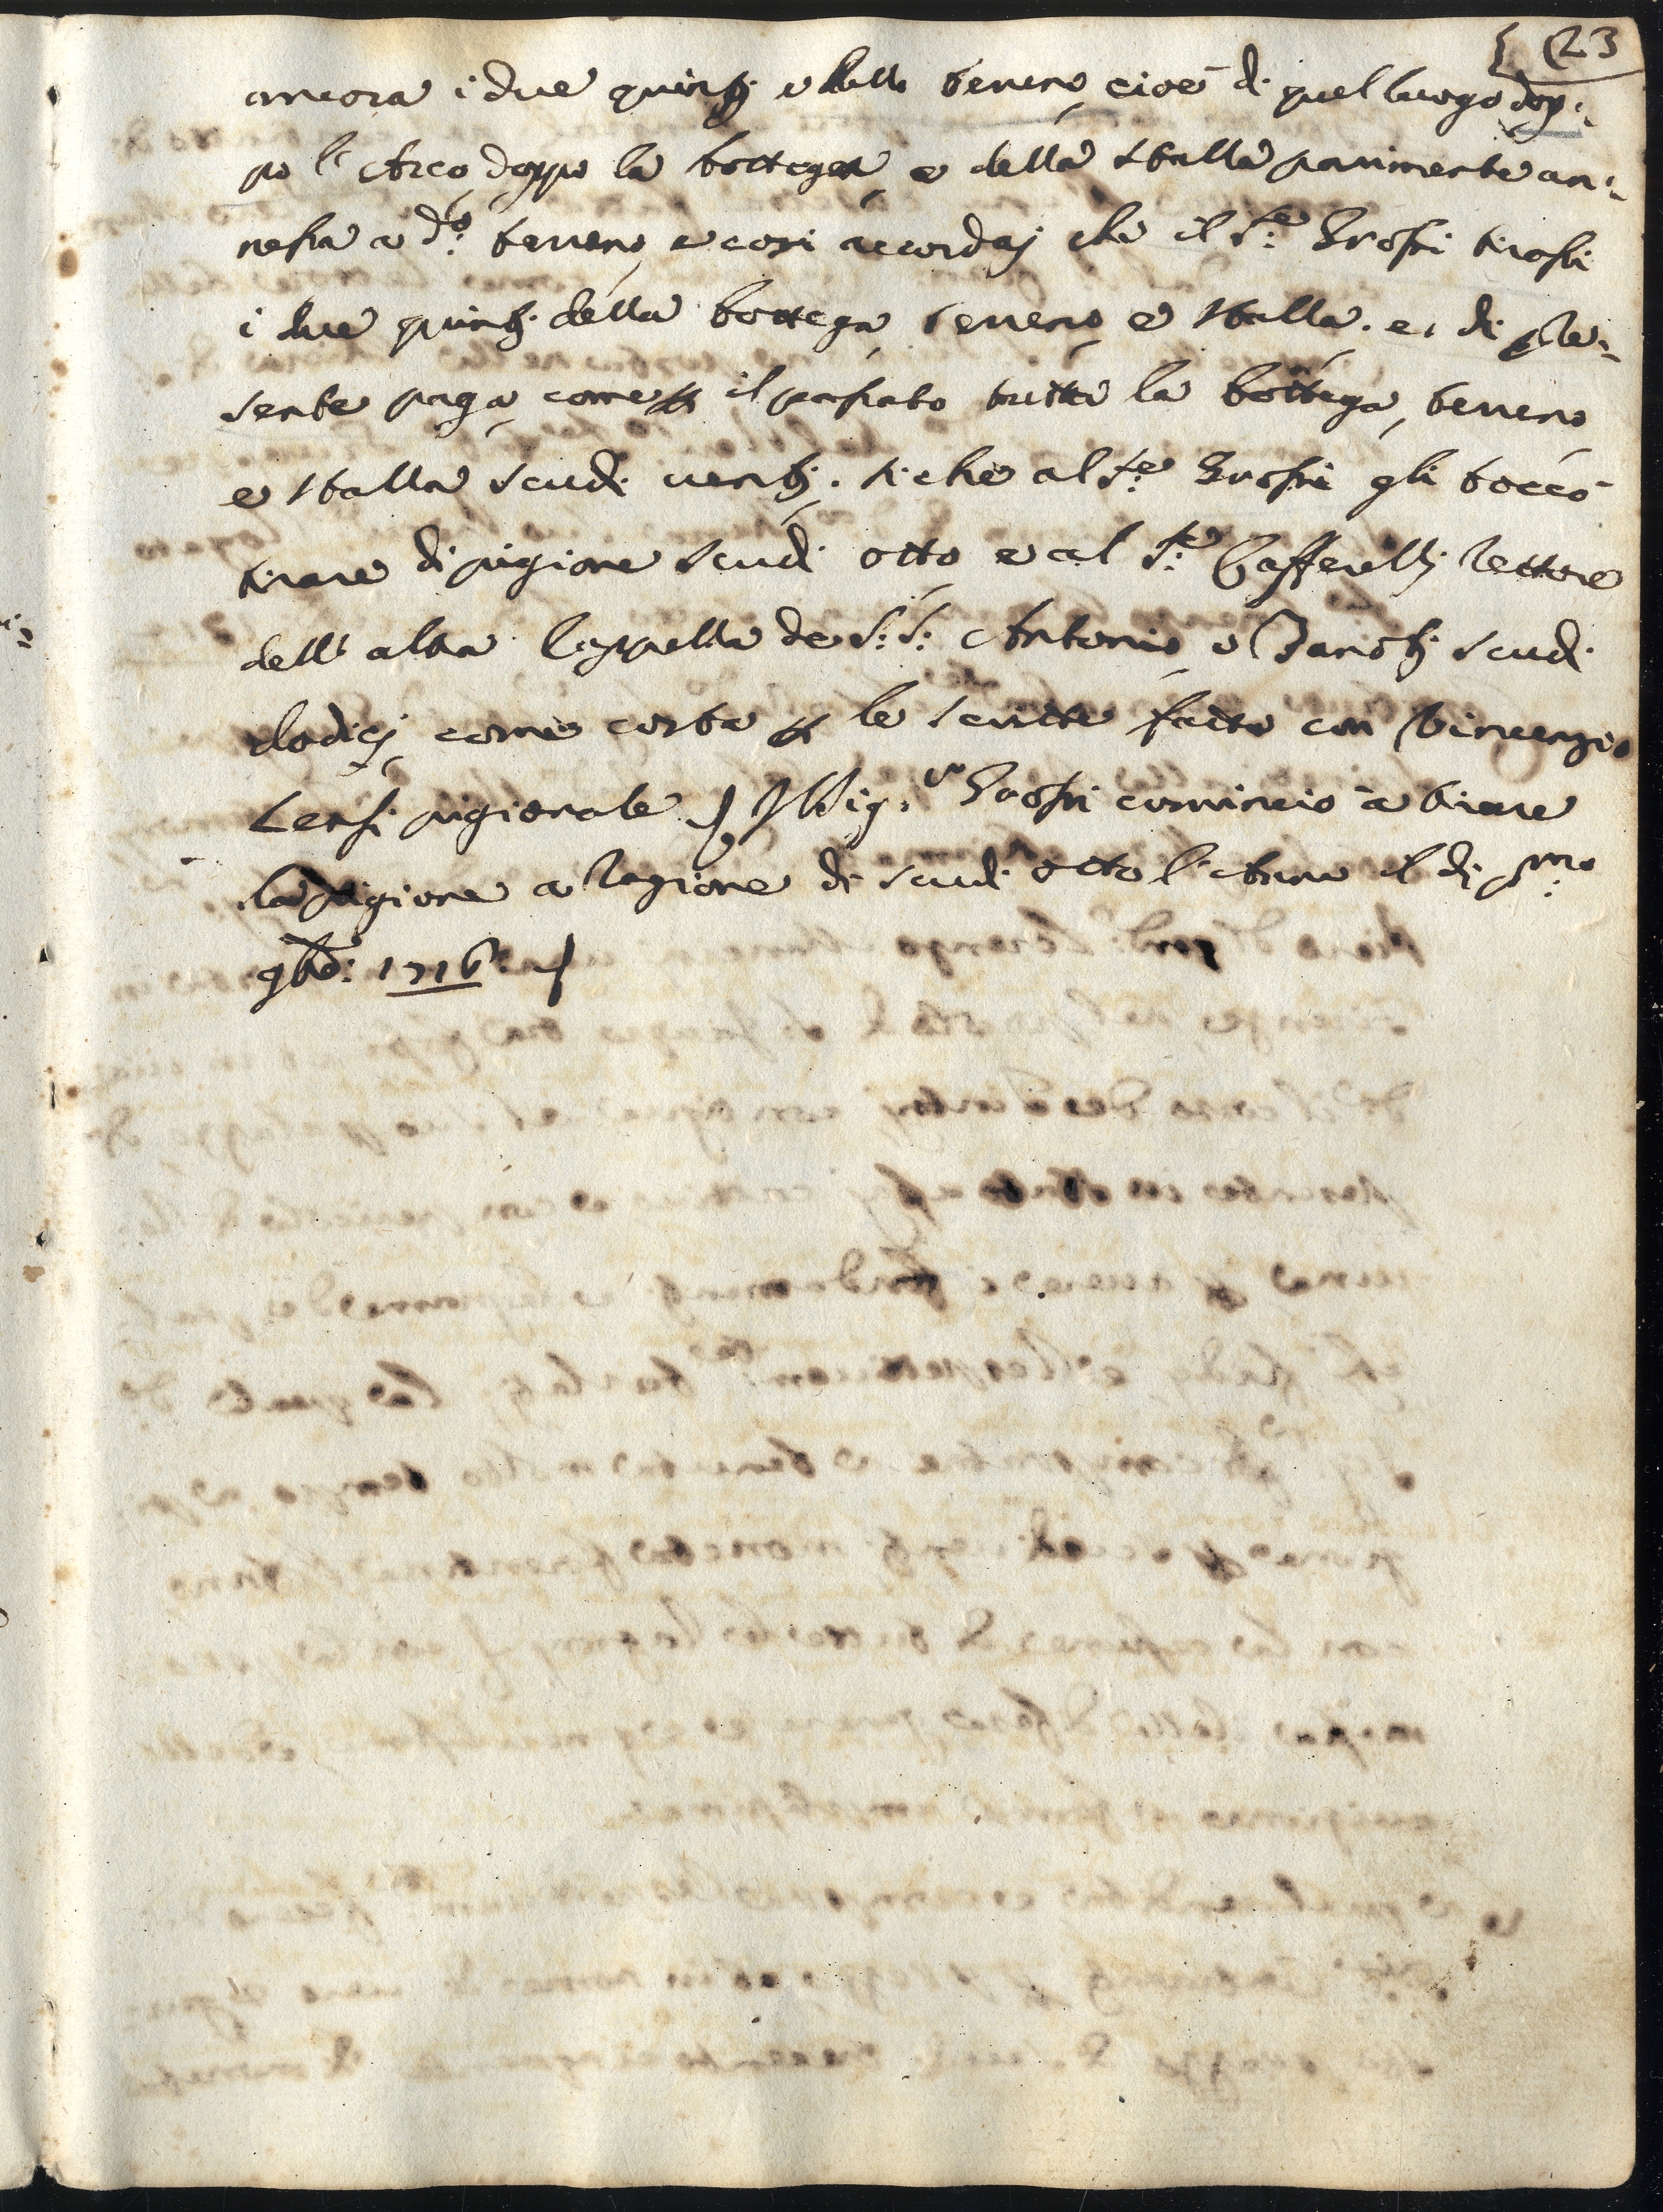 23
ancora i due quinti e dello terreno cioè di quel luogo dop:
po l'Arco doppo la bottega, e della stalla parimente an:
nessa a d.o: terreno, e così accordai che il S.re Grossi tirassi
i due quinti della bottega, terreno, e stalla. e, di pre:
sente paga, come p il passato tutta la bottega, terreno
e stalla scudi venti. si che al S.re Grossi gli toccò
tirare di pigione scudi otto e al S.re Cafferelli Rettore
dell'altra Cappella de S.: S.: Antonio, e Zanobi scudi
dodici, come costa p le scritte fatte con Vincenzio
Censi pigionale. Il Sig.re Grossi cominciò à tirare
la pigione a ragione di scudi otto l'Anno il di p.mo
9bre: 1716.